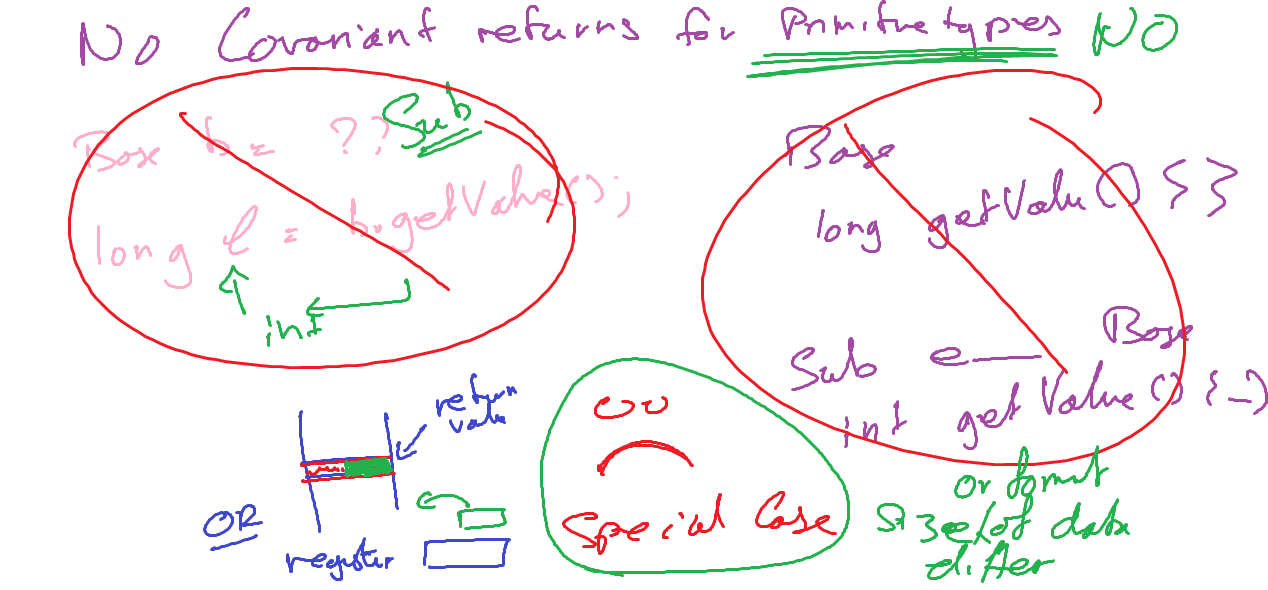 No Covariant returns for Primitive types NO
Base b = ?? Sub
long l = b.getValue();
int
Base
long getValue() { }
Sub e Base
int getValue() { }
return
value
OR
register
Special Case
or format
size/of data
differ